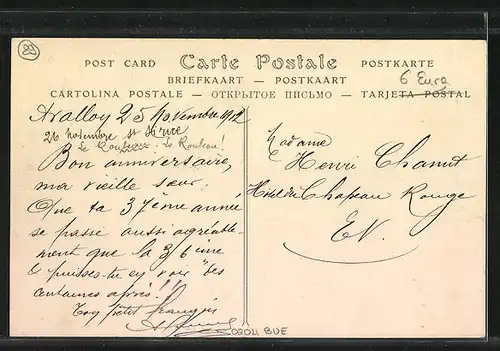 POST CARD Carte Postale POSTKARTE
BRIEFKAART — POSTKAART
CARTOLINA POSTALE — ОТКРЫТОЕ ПИСЬМО — TARJETA POSTAL
6 Eura
Avallon 25 Novembre 1912
26 novembre st
Le Rouleau!
Bon anniversaire,
ma vieille sœur.
Que ta 37eme année
se passe aussi agréable-
ment que la 36 ème
& puisses-tu en voir des
centaines après!!
Ton petit françois
Madame
Henri Chanut
Hôtel du Chapeau Rouge
EV.
0204 BUE